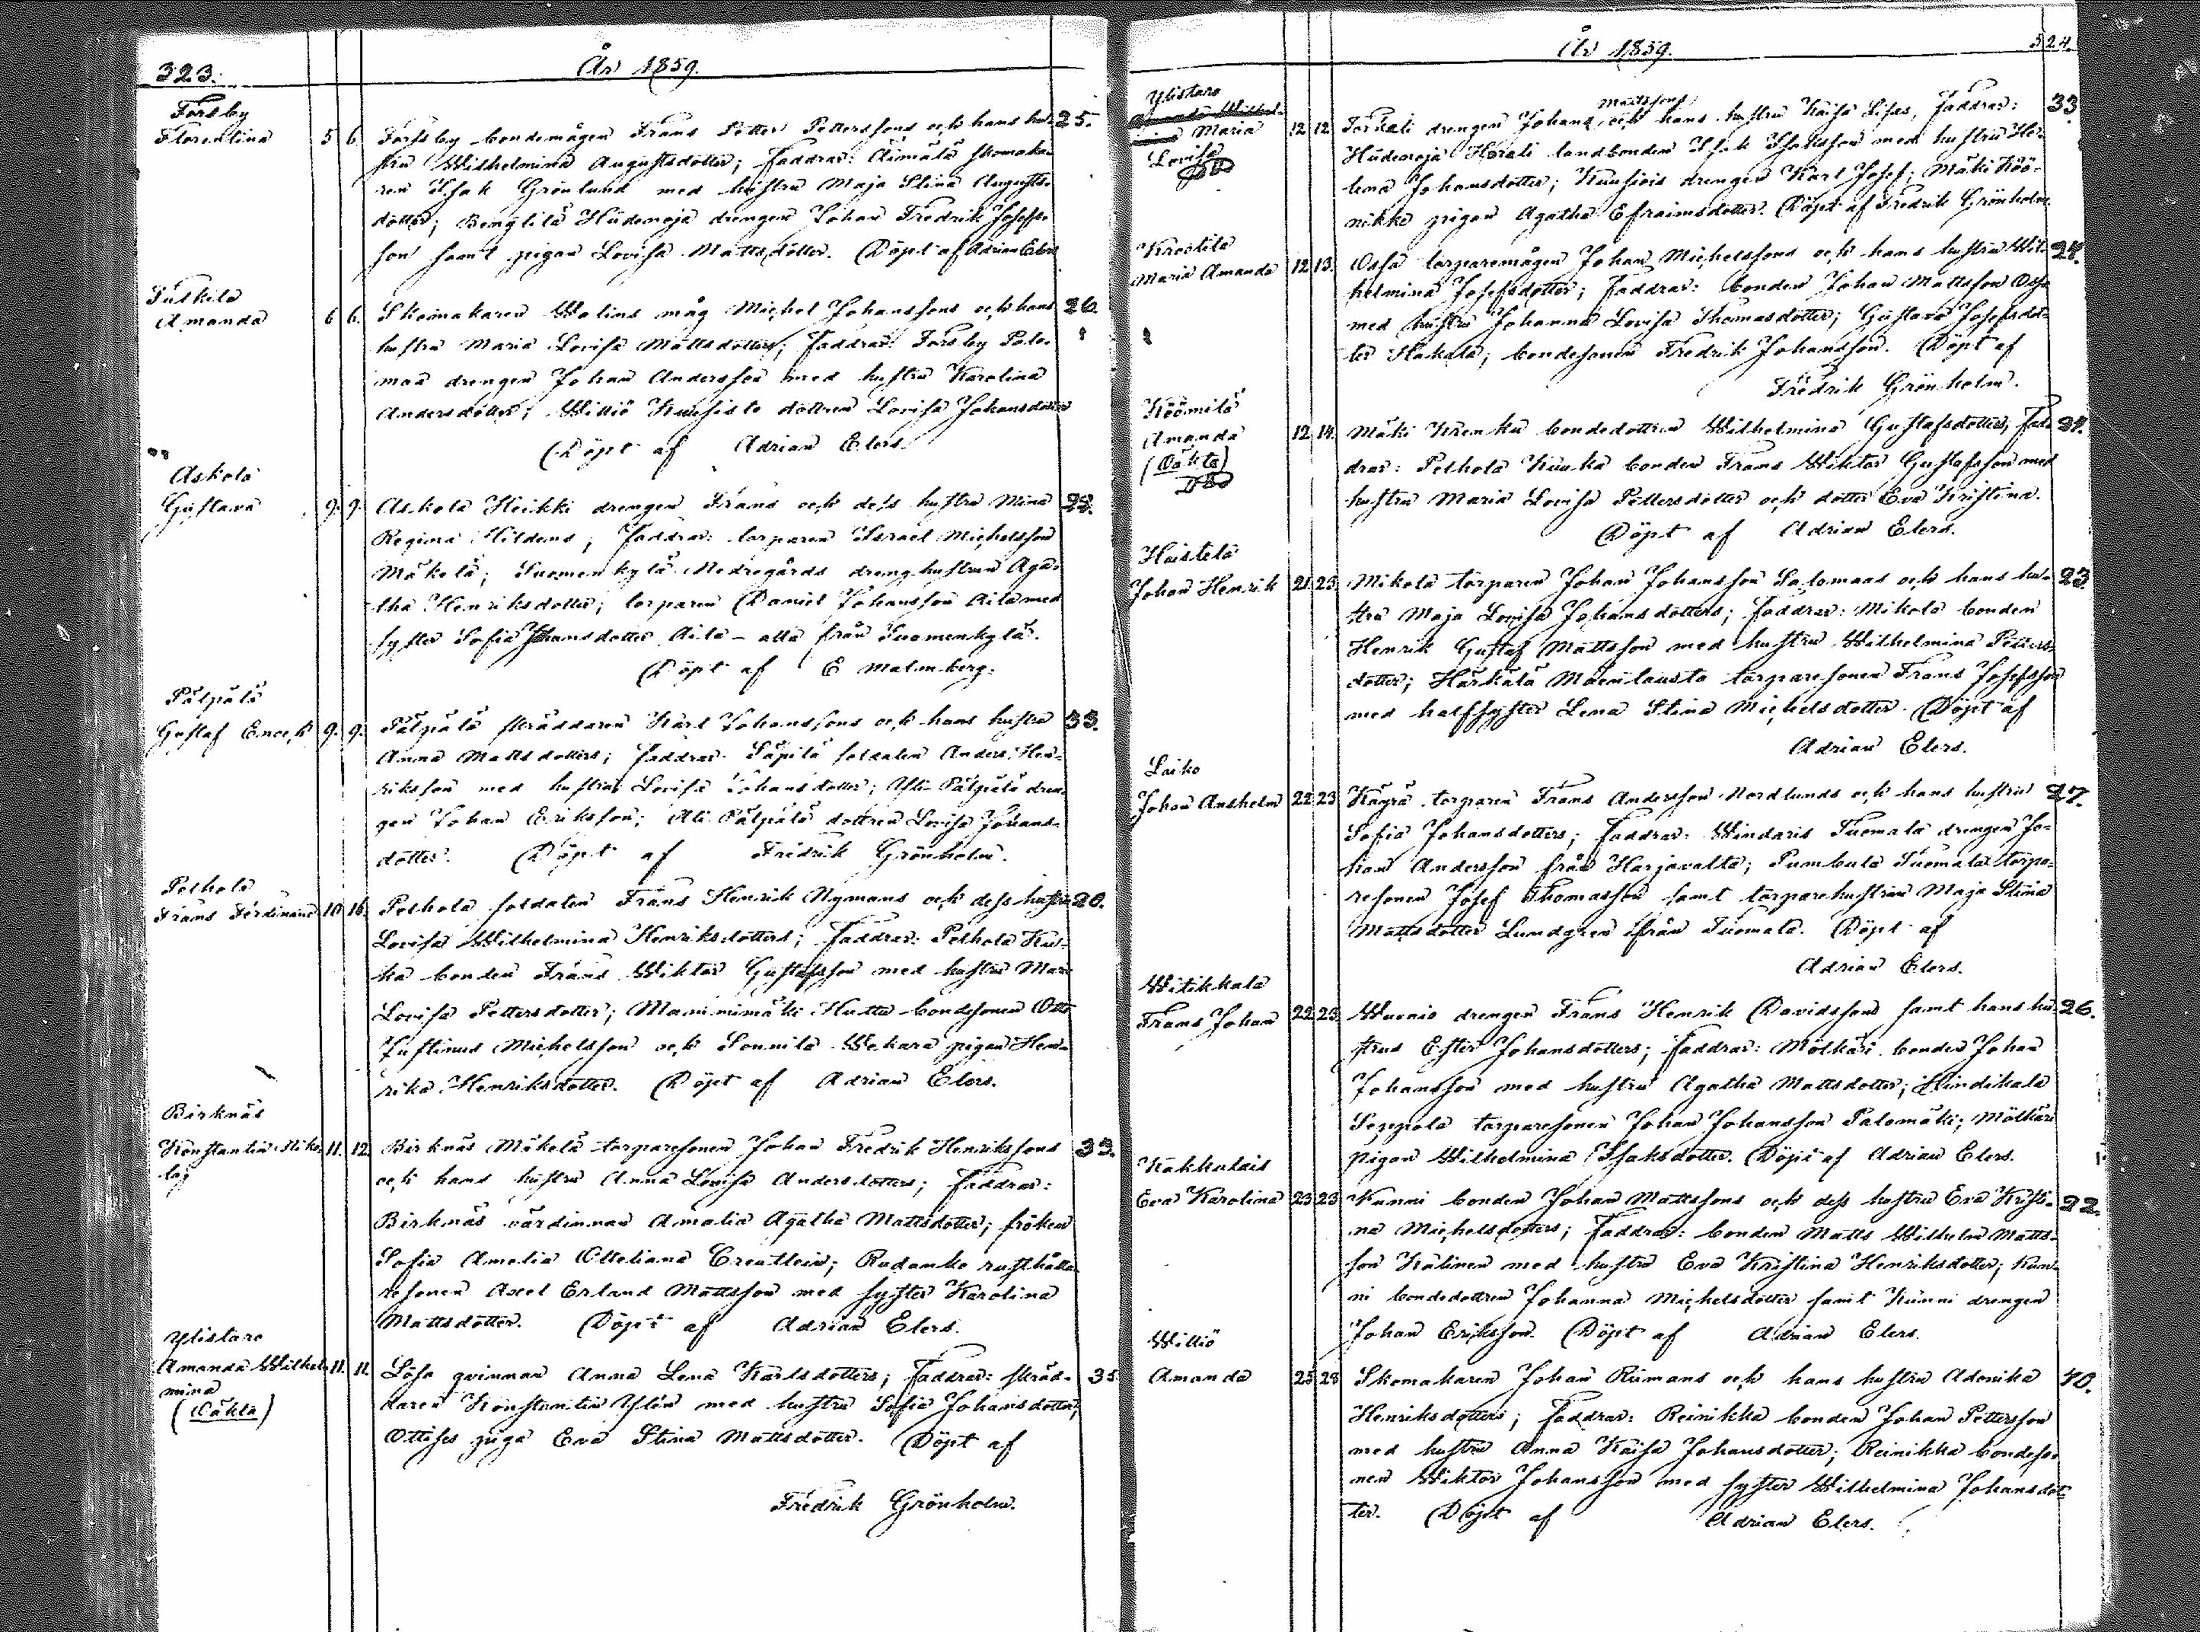 323.
År 1859.
Forsby
Florentina 5 6. Forsby bondemågen Frans Petter Petterssons och hans hu- 25.
stru Wilhelmina Augustsdotter; Faddrar: Äimälä skomaka-
ren Isak Grönlund med hustru Maja Stina Augusts-
dotter; Bengtilä Hiidenoja drengen Johan Fredrik Josefs-
son samt pigan Lovisa Mattsdotter. Döpt af Adrian Elers
Tulkila
Amanda 6 6. Skomakaren Wolins måg Michel Johanssons och hans 26.
hustru Maria Lovisa Mattsdotters; Faddrar: Forsby Palo-
maa drengen Johan Andersson med hustru Karolina
Andersdotter; Williö Kuusisto dottren Lovisa Johansdotter
Döpt af Adrian Elers.
Askola
Gustava 9. 9. Askola Heikki drengen Frans och dess hustru Mina
Regina Hildens; Faddrar: torparen Israel Michelsson
Mäkelä; Suomenkylä Nedregårds drenghustrun Aga-
tha Henriksdotter; torparen Daniel Johansson Aila med
syster Sofia Johansdotter Aila - alla från Suomenkylä.
Döpt af E Malmberg.
Pälpälä
Gustaf Enoch 9. 9. Pälpälä skräddaren Karl Johanssons och hans hustru 33.
Anna Mattsdotters; Faddrar: Säpilä soldaten Anders Hen-
riksson med hustru Lovisa Johansdotter; Yli Pälpälä dren-
gen Johan Eriksson; Ali Pälpälä dottren Lovisa Johans-
dotter. Döpt af Fredrik Grönholm.
Pelhola
Frans Ferdinand 10 16. Pelhola soldaten Frans Henrik Nymans och dess hustru 20.
Lovisa Wilhelmina Henriksdotters; Faddrar: Pelhola Kuu-
ka bonden Frans Wiktor Gustafsson med hustru Mari
Lovisa Pettersdotter; Maninimäki Hutta bondsonen Otto
Justinus Michelsson och Sonnila Wekara pigan Hen-
rika Henriksdotter. Döpt af Adrian Elers.
Birknäs
Konstantin Niko- 11. 12. Birknäs Mäkelä torparesonen Johan Fredrik Henrikssons 33.
laj och hans hustru Anna Lovisa Andersdotters; Faddrar:
Birknäs värdinnan Amalia Agatha Mattsdotter; fröken
Sofia Amelia Otteliana Creutlein; Rudanko rusthålla-
resonen Axel Erland Mattsson med syster Karolina
Mattsdotter. Döpt af Adrian Elers.
Ylistaro
Amanda Wilhel- 11. 11. Lösa qvinnan Anna Lena Karlsdotters; Faddrar: skräd- 35
mina daren Konstantin Ylén med hustru Sofia Johansdotter;
(Oäkta) Ottises piga Eva Stina Mattsdotter. Döpt af
Fredrik Grönholm.
År 1859.
324.
Ylistaro
Maria 12 12. Torkeli drengen Johans Mattssons och hans hustru Kaisa Lisas, Faddrar: 33
Lovisa Hiidenoja Horeli landbonden Isak Isaksson med hustru He-
lena Johansdotter; Kuusiois drengen Karl Josef; Mäki Köö-
nikke pigan Agatha Efraimsdotter. Döpt af Fredrik Grönholm
Krootila
Maria Amanda 12 13. Ossa torparemågen Johan Michelssons och hans hustru Wil- 24.
helmina Josefsdotter; Faddrar: bonden Johan Mattsson Ossa
med hustru Johanna Lovisa Thomasdotter; Gustava Josefsdot-
ter Hakala; bondesonen Fredrik Johansson. Döpt af
Fredrik Grönholm.
Köömilä
Amanda 12 14. Mäki Krenku bondedottren Wilhelmina Gustafsdotters, Fad-
(Oäkta) drar: Pelhola Kuuka bonden Frans Wiktor Gustafsson med
hustru Maria Lovisa Pettersdotter och dotter Eva Kristina.
Döpt af Adrian Elers.
Haistela
Johan Henrik 21. 23. Mikola torparen Johan Johansson Salomaas och hans hu- 23
stru Maja Lovisa Johansdotters; Faddrar: Mikola bonden
Henrik Gustaf Mattsson med hustru Wilhelmina Petters-
dotter; Härkälä Maenlausta torparesonen Frans Josefsson
med halfsyster Lena Stina Michelsdotter. Döpt af
Adrian Elers.
Laiko
Johan Anshelm 22 23 Kägrä torparen Frans Andersson Nordlunds och hans hustru 27.
Sofia Johansdotters; Faddrar: Windaris Tuomala drengen Jo-
han Andersson från Harjavalta; Pumbula Tuomala torpa-
resonen Josef Thomasson samt torparehustrun Maja Stina
Mattsdotter Lundgren ifrån Tuomala. Döpt af
Adrian Elers.
Witikkala
Frans Johan 22 23. Wuenio drengen Frans Henrik Davidssons samt hans hu- 26.
strus Ester Johansdotters; Faddrar: Mölkäri bonden Johan
Johansson med hustru Agatha Mattsdotter; Hindikala
Seppola torparesonen Johan Johansson Palomäki; Mölkäri
pigan Wilhelmina Isaksdotter. Döpt af Adrian Elers.
Kakkulais
Eva Karolina 23 23 Kunni bonden Johan Mattssons och dess hustru Eva Kristi- 22.
na Michelsdotters; Faddrar: bonden Matts Wilhelm Matts-
son Kälinen med hustru Eva Kristina Henriksdotter; Kun-
ni bondedottren Johanna Michelsdotter samt Kunni drengen
Johan Eriksson. Döpt af Adrian Elers.
Williö
Amanda 25 28 Skomakaren Johan Rumans och hans hustru Adonika 40.
Henriksdotters; Faddrar: Reinikka bonden Johan Pettersson
med hustru Anna Kaisa Johansdotter; Reinikka bondeso-
nen Wiktor Johansson med syster Wilhelmina Johansdot-
ter. Döpt af Adrian Elers.